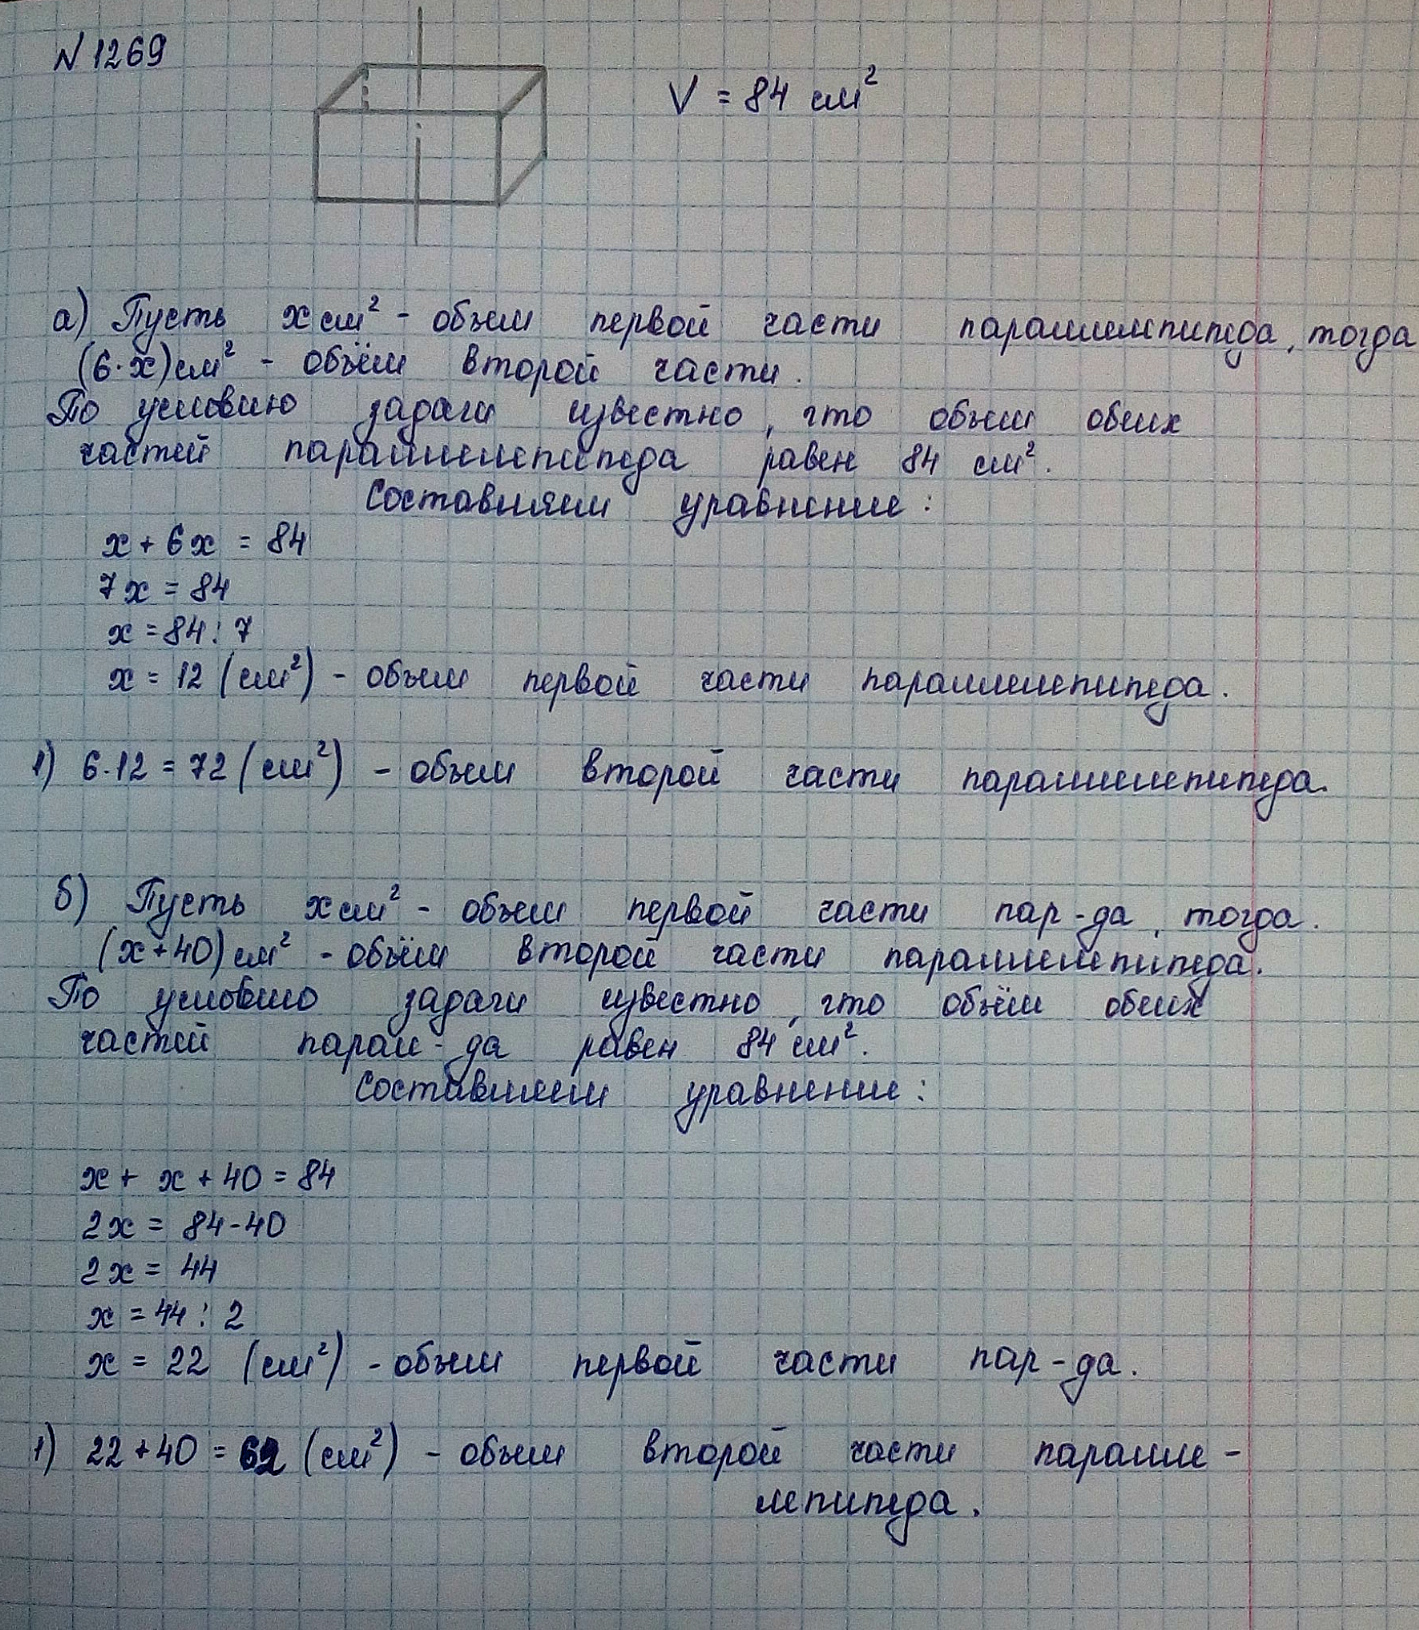 N 1269
V = 84 см²
а) Пусть x см² - объем первой части параллелепипеда, тогда
(6·x) см² - объём второй части.
По условию задачи известно, что объем обеих
частей параллелепипеда равен 84 см².
Составляем уравнение:
x + 6x = 84
7x = 84
x = 84 : 7
x = 12 (см²) - объем первой части параллелепипеда.
1) 6·12 = 72 (см²) - объем второй части параллелепипеда.
б) Пусть x см² - объем первой части пар-да, тогда.
(x+40) см² - объём второй части параллелепипеда.
По условию задачи известно, что объём обеих
частей парал-да равен 84 см².
Составляем уравнение:
x + x + 40 = 84
2x = 84-40
2x = 44
x = 44 : 2
x = 22 (см²) - объем первой части пар-да.
1) 22+40 = 62 (см²) - объем второй части паралле-
лепипеда.